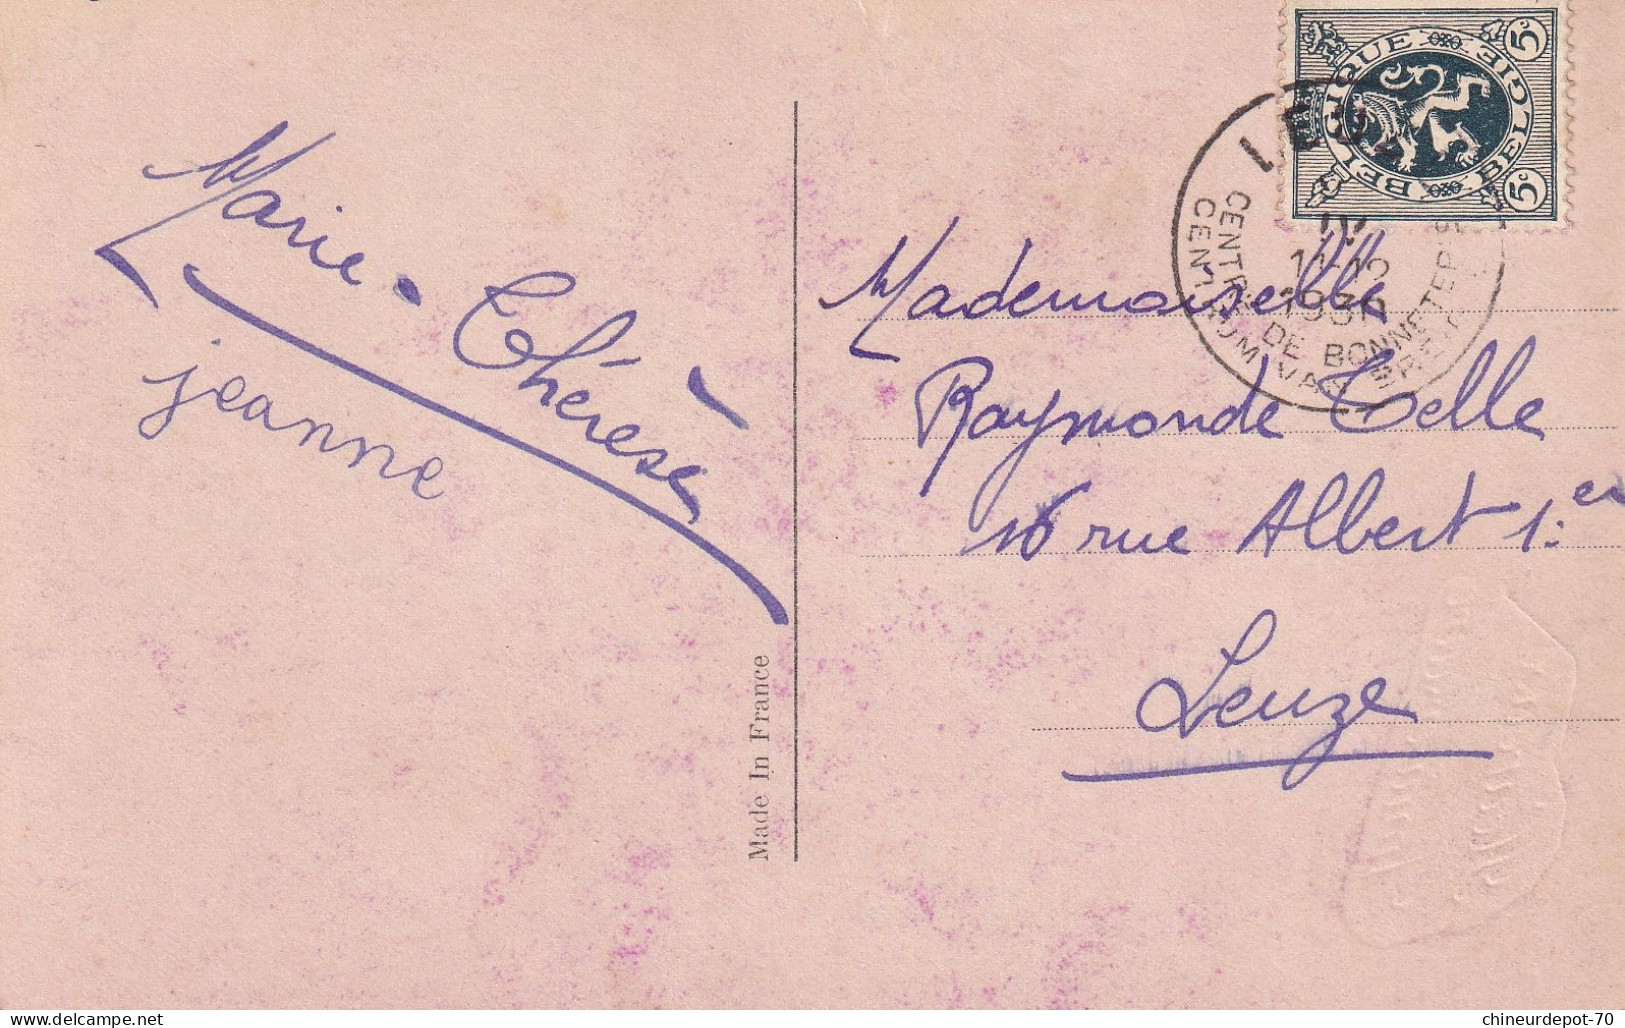 Marie-Thérèse
jeanne
Made In France
BELGIQUE BELGIË
5c
5c
LEUZE
IV
11-12
1930
CENTRE DE BONNETERIE
CENTRUM VAN
Mademoiselle
Raymonde Telle
16 rue Albert 1er
Leuze
chineurdepot-70